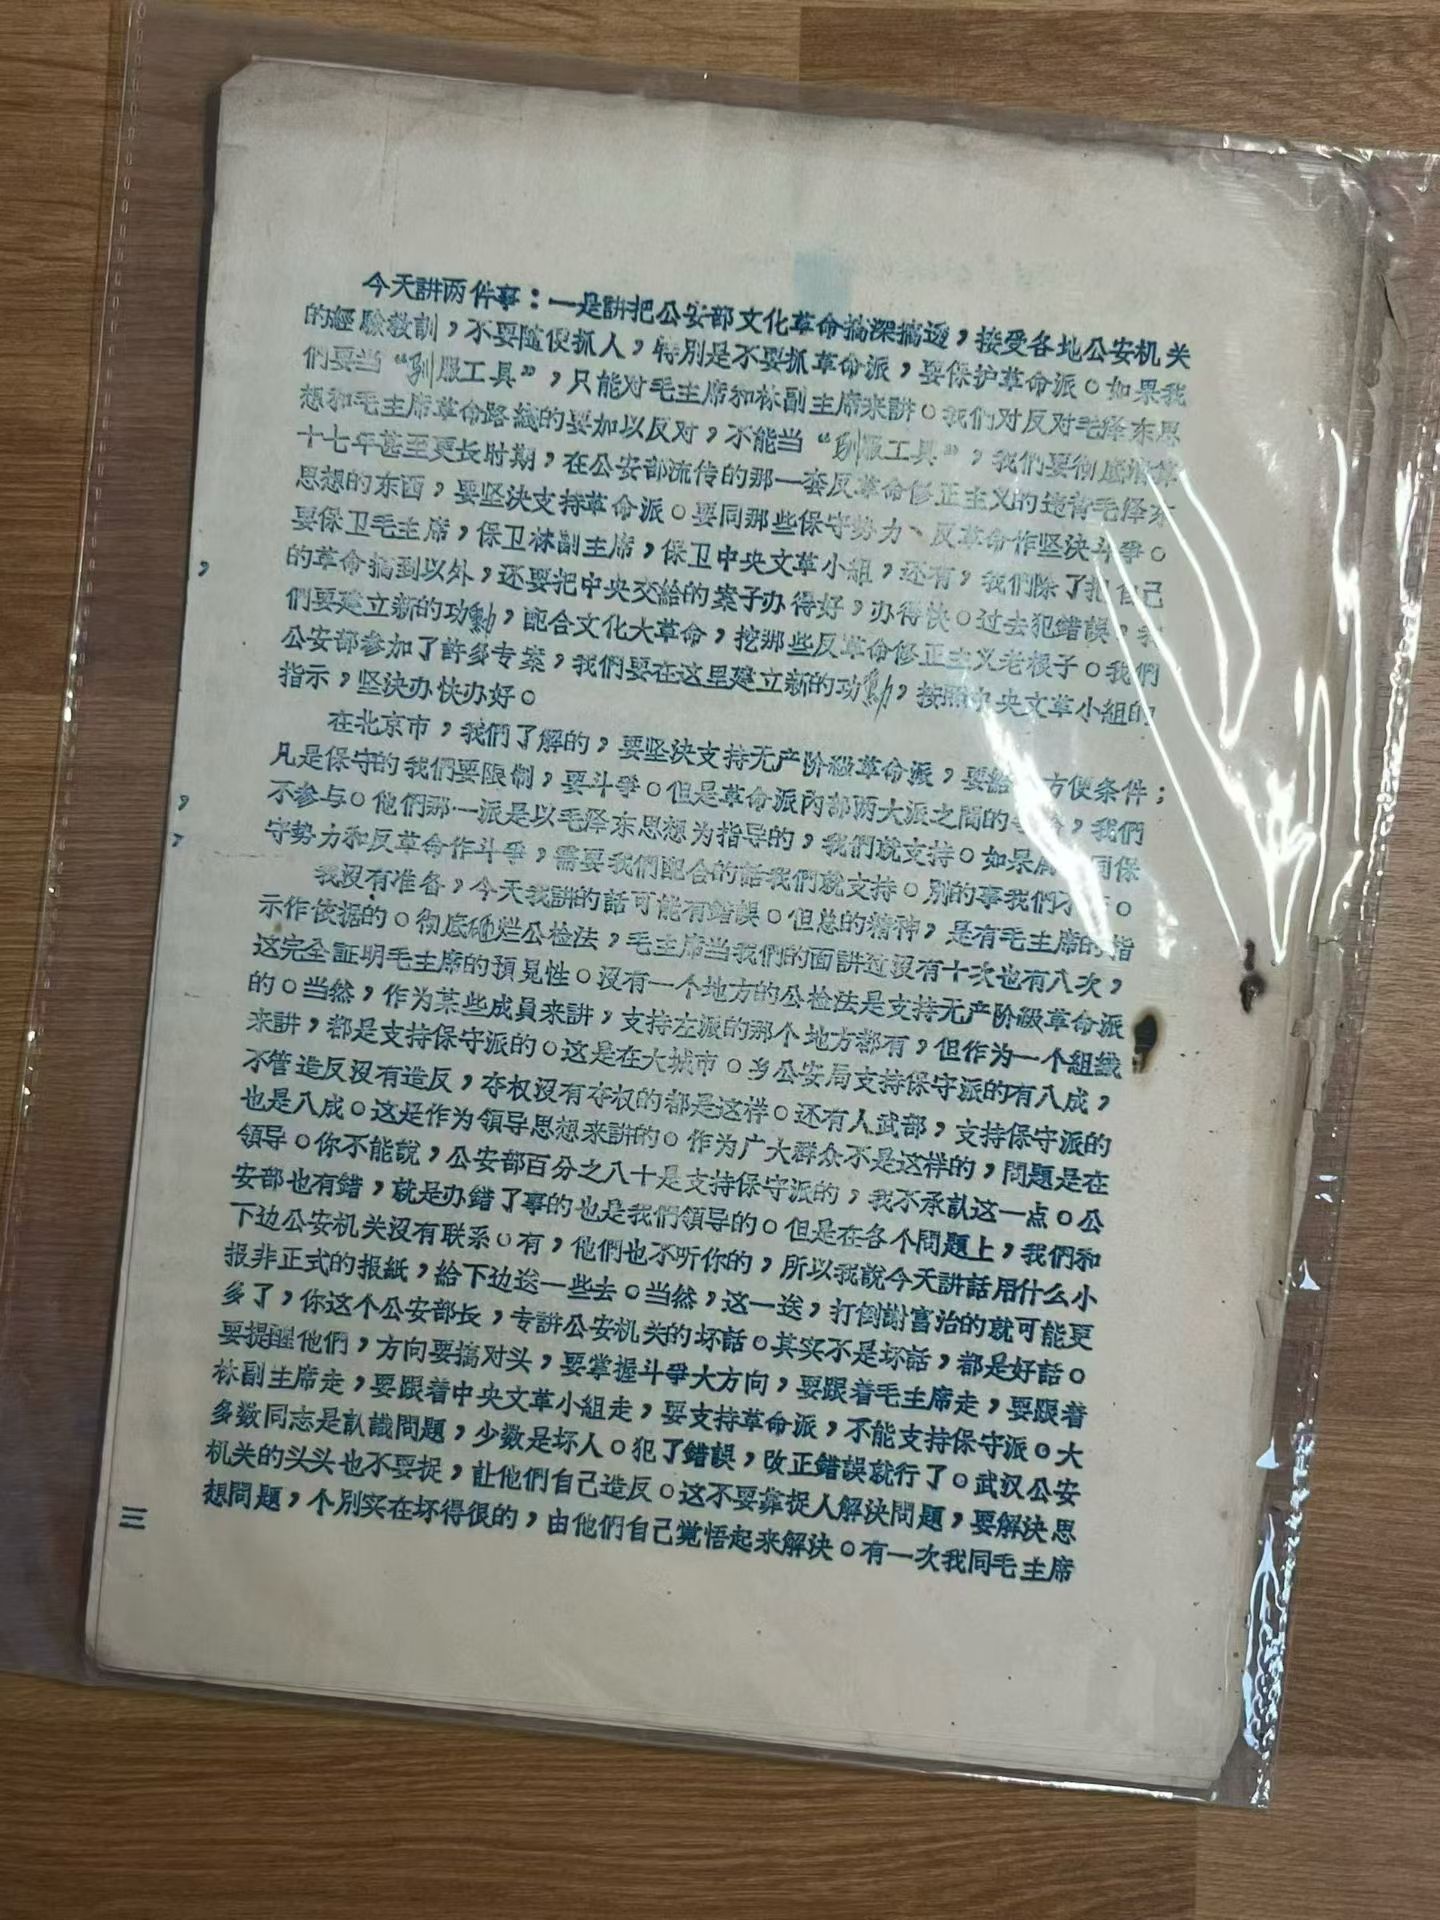 今天讲两件事：一是讲把公安部文化革命搞深搞透，接受各地公安机关
的經驗教訓，不要随便抓人，特別是不要抓革命派，要保护革命派。如果我
們要当“馴服工具”，只能对毛主席和林副主席来讲。我們对反对毛泽东思
想和毛主席革命路綫的要加以反对，不能当“馴服工具”，我們要彻底清算
十七年甚至更长时期，在公安部流传的那一套反革命修正主义的违背毛泽东
思想的东西，要坚决支持革命派。要同那些保守势力、反革命作坚决斗爭。
要保卫毛主席，保卫林副主席，保卫中央文革小組，还有，我們除了把自己
的革命搞到以外，还要把中央交給的案子办得好，办得快。过去犯錯誤，我
們要建立新的功勳，配合文化大革命，挖那些反革命修正主义老根子。我們
公安部参加了許多专案，我們要在这里建立新的功勳，按照中央文革小組的
指示，坚决办快办好。
在北京市，我們了解的，要坚决支持无产阶級革命派，要給 方便条件；
凡是保守的我們要限制，要斗爭。但是革命派內部两大派之間的 ，我們
不参与。他們那一派是以毛泽东思想为指导的，我們就支持。如果 同保
守势力和反革命作斗爭，需要我們配合的話我們就支持。別的事我們不 。
我沒有准备，今天我讲的話可能有錯誤。但总的精神，是有毛主席的指
示作依据的。彻底砸烂公检法，毛主席当我們的面讲过沒有十次也有八次，
这完全証明毛主席的預見性。沒有一个地方的公检法是支持无产阶級革命派
的。当然，作为某些成員来讲，支持左派的那个地方都有，但作为一个組織
来讲，都是支持保守派的。这是在大城市。乡公安局支持保守派的有八成，
不管造反沒有造反，夺权沒有夺权的都是这样。还有人武部，支持保守派的
也是八成。这是作为領导思想来讲的。作为广大群众不是这样的，問題是在
領导。你不能說，公安部百分之八十是支持保守派的，我不承訙这一点。公
安部也有錯，就是办錯了事的也是我們領导的。但是在各个問題上，我們和
下边公安机关沒有联系。有，他們也不听你的，所以我說今天讲話用什么小
报非正式的报紙，給下边送一些去。当然，这一送，打倒謝富治的就可能更
多了，你这个公安部长，专讲公安机关的坏話。其实不是坏話，都是好話。
要提醒他們，方向要搞对头，要掌握斗爭大方向，要跟着毛主席走，要跟着
林副主席走，要跟着中央文革小組走，要支持革命派，不能支持保守派。大
多数同志是訙識問題，少数是坏人。犯了錯誤，改正錯誤就行了。武汉公安
机关的头头也不要捉，让他們自己造反。这不要靠捉人解決問題，要解決思
想問題，个別实在坏得很的，由他們自己覚悟起来解決。有一次我同毛主席
三